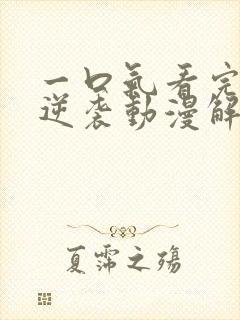 一口氣看完
逆袭動漫解
夏霈之殤